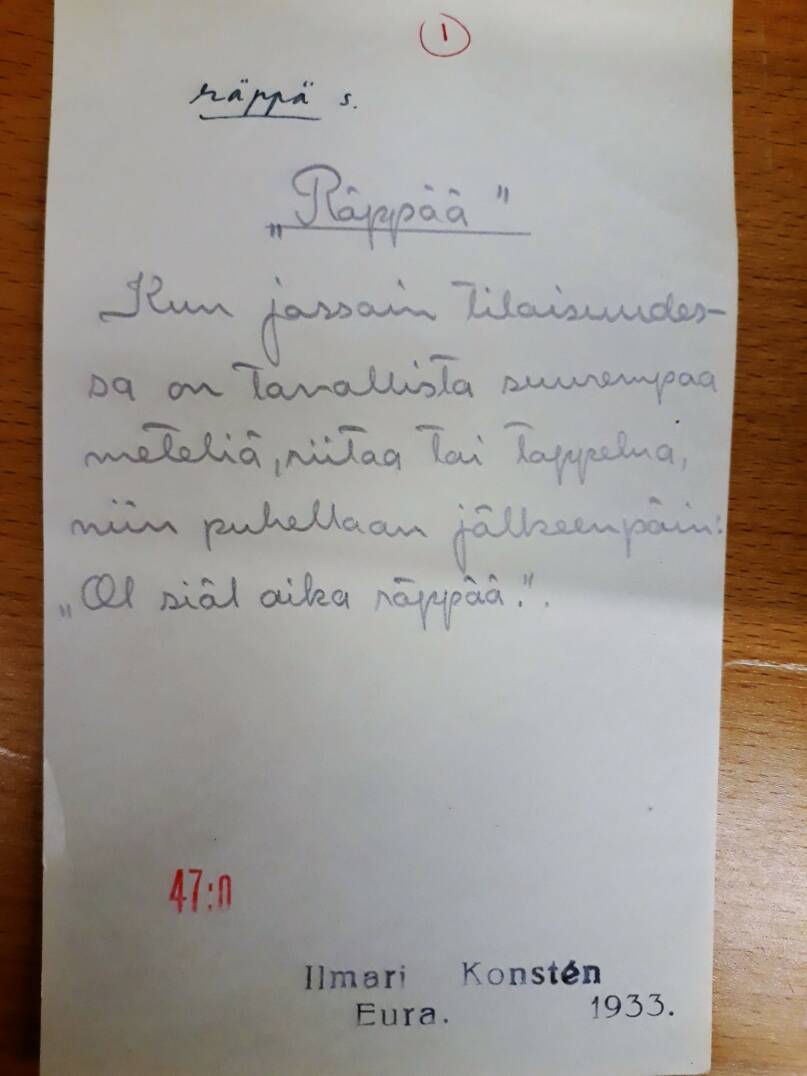 1
räppä s.
„Räppää"
Kun jossain tilaisuudes-
sa on tavallista suurempaa
meteliä, riitaa tai tappelua,
niin puhellaan jälkeenpäin:
„Ol siäl aika räppää.".
47:0
Ilmari Konstén
Eura. 1933.